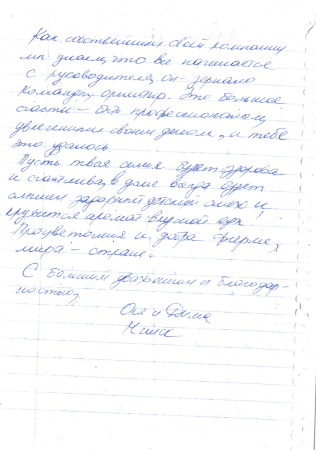 Как собственники своей компании
мы знаем, что все начинается
с руководителя, он - зеркало
команды, ориентир. Это большое
счастье - быть профессионалом,
увлеченным своим делом, и тебе
это удалось.
Пусть твоя семья будет здорова
и счастлива, в доме всегда будет
слышен задорный детский смех и
кружится аромат вкусной еды!
Процветания и добра фирме,
мира - стране.
С большим уважением и благодар-
ностью,
Оля и Дима
Минск